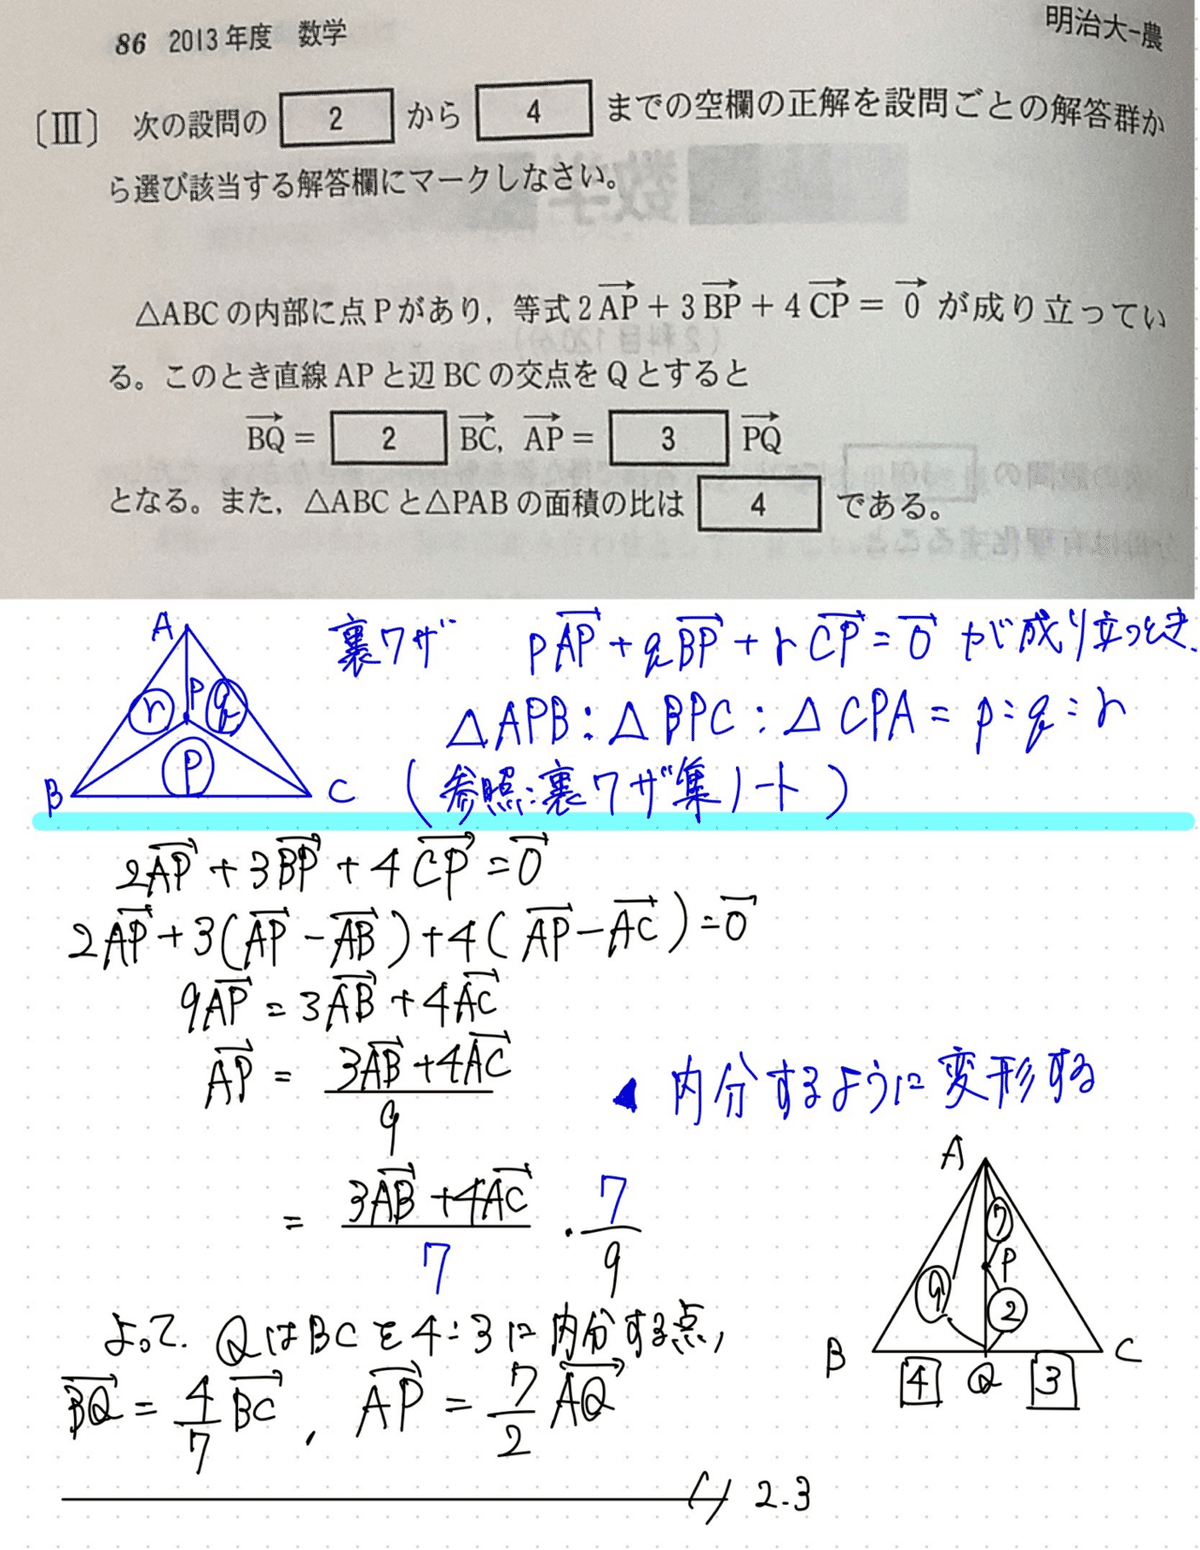 86 2013年度 数学
明治大-農
〔Ⅲ〕 次の設問の 2 から 4 までの空欄の正解を設問ごとの解答群か
ら選び該当する解答欄にマークしなさい。
△ABCの内部に点Pがあり,等式2AP→ + 3BP→ + 4CP→ = 0→ が成り立ってい
る。このとき直線APと辺BCの交点をQとすると
BQ→ = 2 BC→, AP→ = 3 PQ→
となる。また,△ABCと△PABの面積の比は 4 である。
裏ワザ pAP→ + qBP→ + rCP→ = 0→ が成り立つとき.
△APB:△BPC:△CPA = p:q:r
(参照:裏ワザ集ノート)
A
r P q
p
B C
2AP→ + 3BP→ + 4CP→ = 0→
2AP→ + 3(AP→ - AB→) + 4(AP→ - AC→) = 0→
9AP→ = 3AB→ + 4AC→
AP→ = (3AB→ + 4AC→)/9
◀ 内分するように変形する
= (3AB→ + 4AC→)/7 · 7/9
よって. QはBCを4:3に内分する点,
BQ→ = 4/7 BC→, AP→ = 7/2 AQ→
A
7
P
9 2
B 4 Q 3 C
2.3